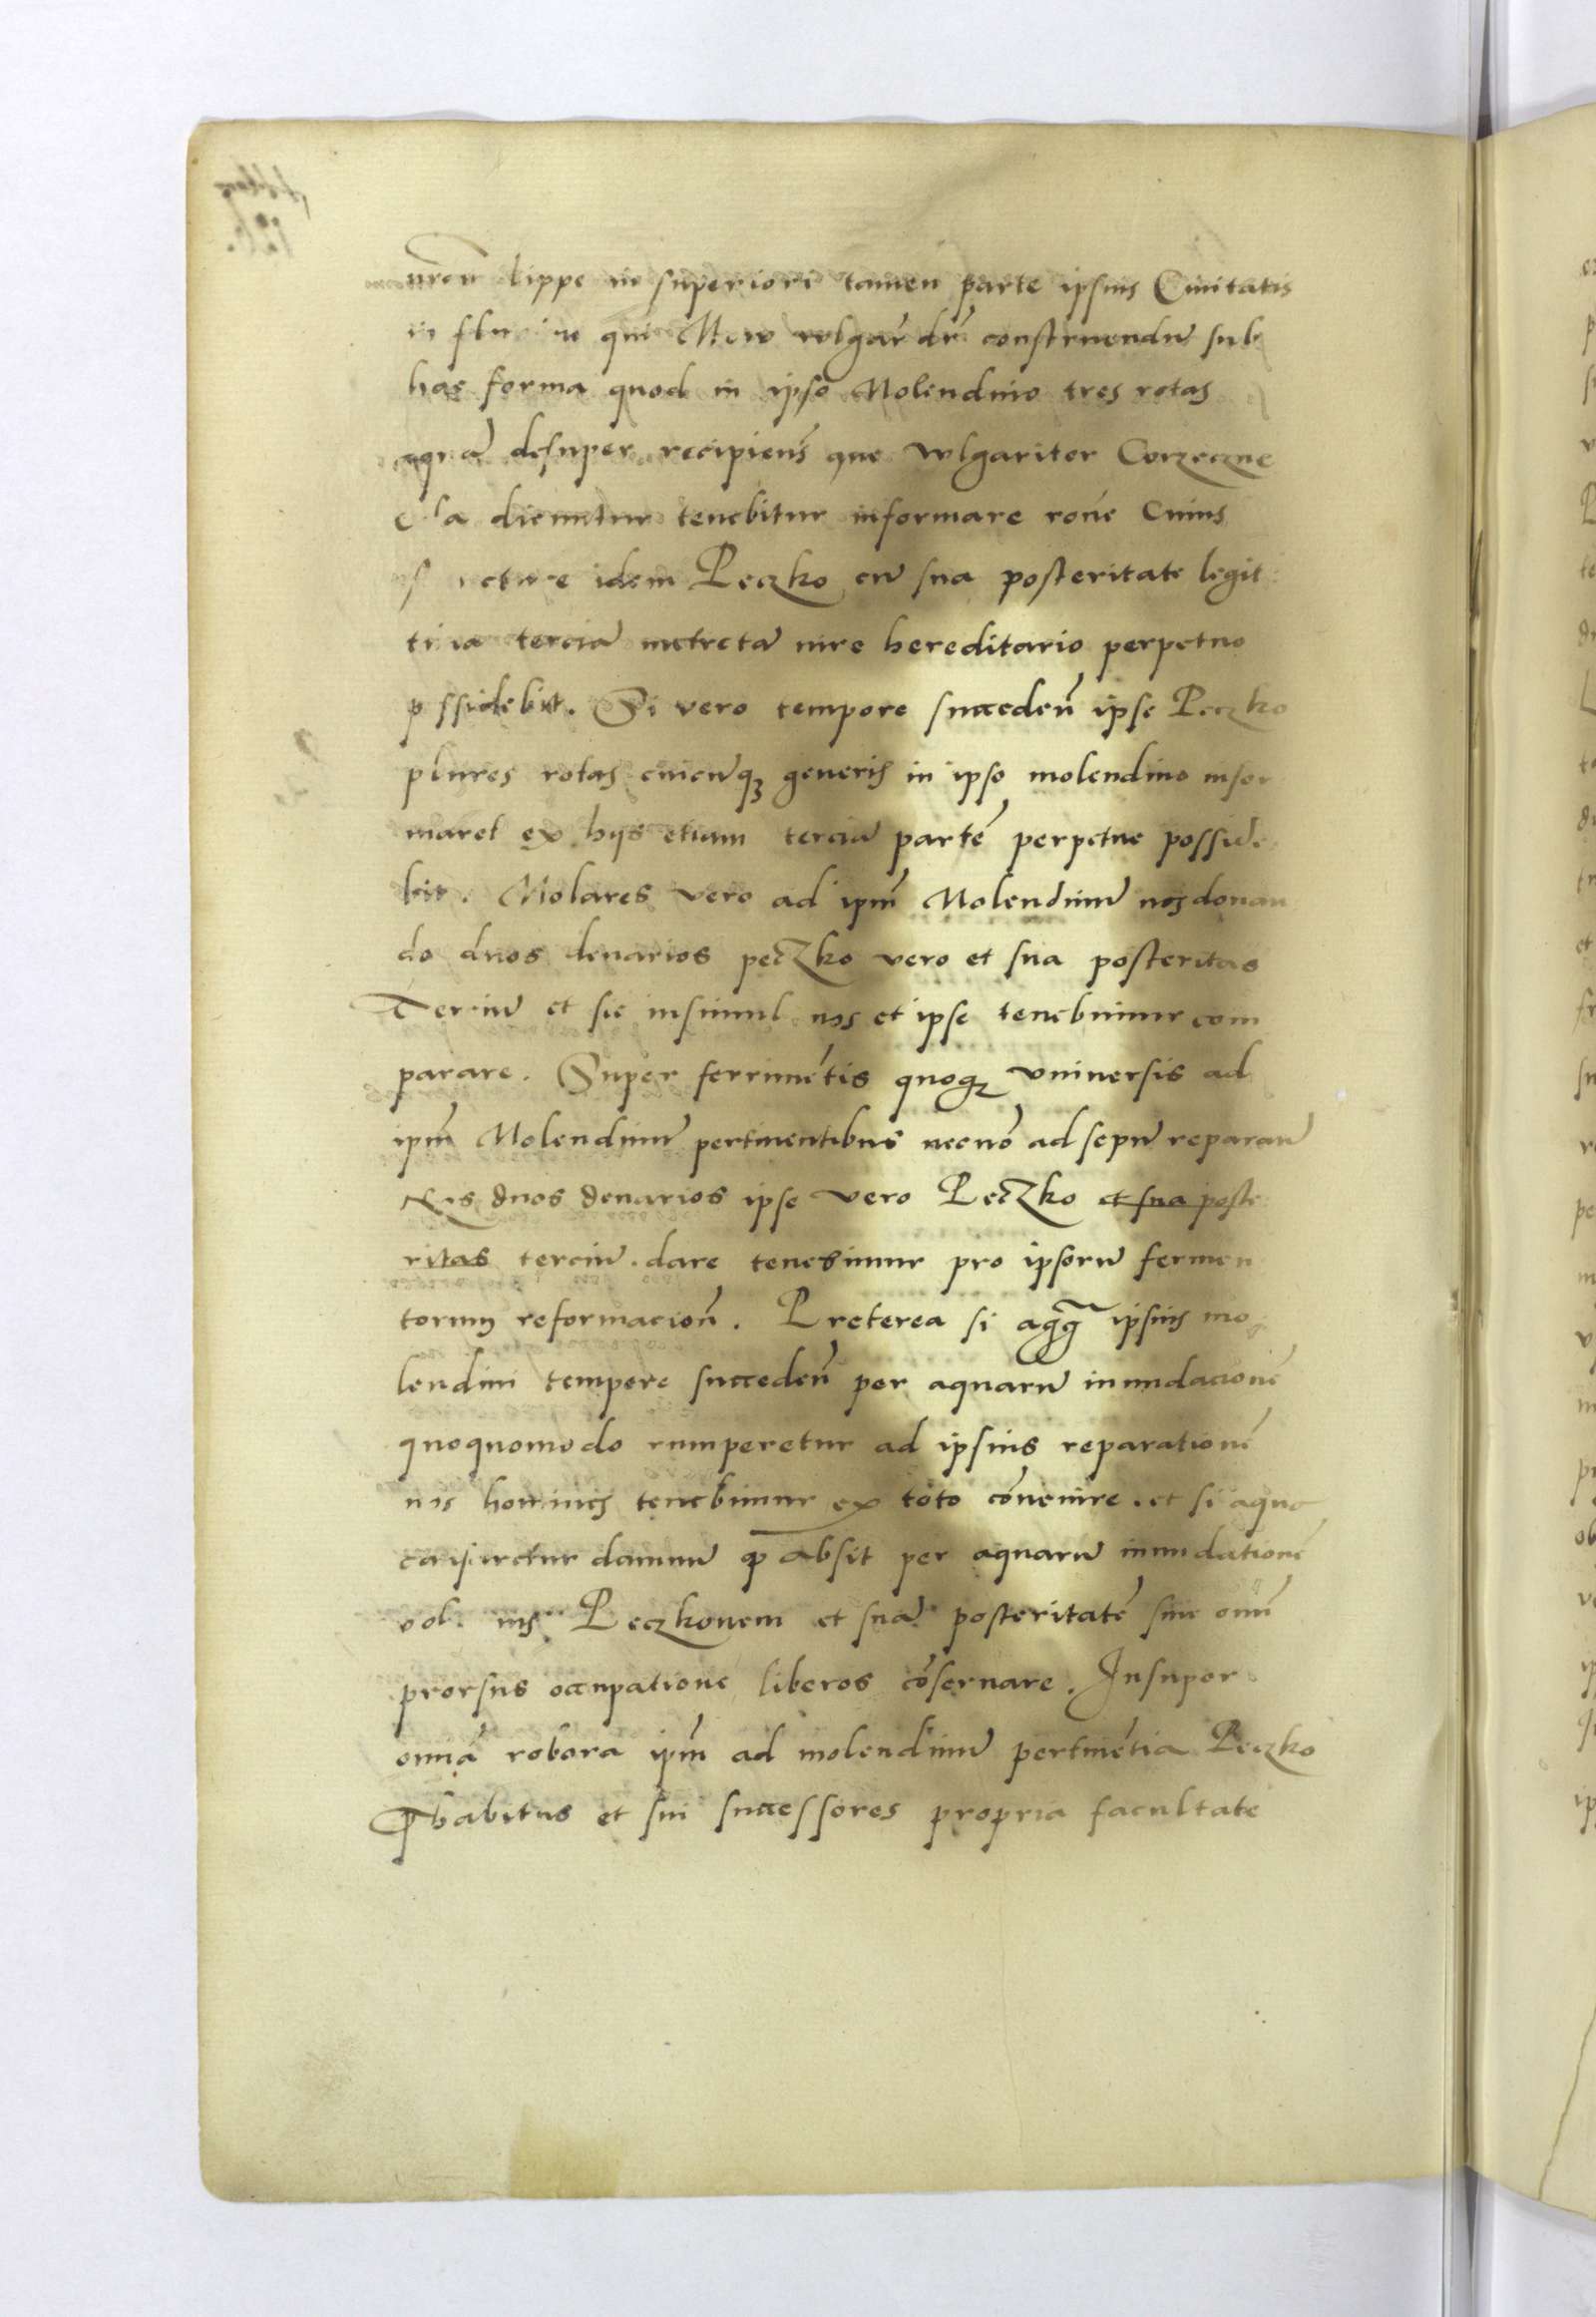 nr̄em lippe in superiori tamen parte ipsius Civitatis
in fluvio qui Mew wlgar̄ dr̄ construendū sub
hac forma quod in ipso Molendino tres rotas
aquā desuper recipiens̄ que wlgariter Corzeczne
dicuntur tenebitur informare ron̄e Cuius
idem Peczko cū sua posteritate legit
tima terciā metretā iure hereditario perpetuo
possidebit. Si vero tempore succeden̄ ipse Peczko
plures rotas cuiuscūq3 generis in ipso molendino infor
maret ex hijs etiam terciā partē perpetue posside
bit. Molares vero ad ipm̄ Molendinū nos donan
do duos denarios peczko vero et sua posteritas
Terciū et sic insimul nos et ipse tenebimur com
parare. Super ferrimētis quoq3 vniuersis ad
ipm̄ Molendinū pertinentibus necnō ad sepū reparan̄
Nos duos denarios ipse vero Peczko et sua poste
ritas terciū dare tenebimur pro ipsorū fermen
torum reformacion̄. Preterea si ipsius mo
lendini tempore succeden̄ per aquarū inundacionē
quoquomodo rumperetur ad ipsius reparationē
nos homines tenebimur ex toto cōuenire. et si aque
damnū qd̄ absit per aquarū inundationē
Peczkonem et suā posteritatē sine omn̄
prorsus occupatione liberos cōseruare. Insuper
omnia robora ipm̄ ad molendinū pertinētia Peczko
p̄habitus et sui successores propria facultate